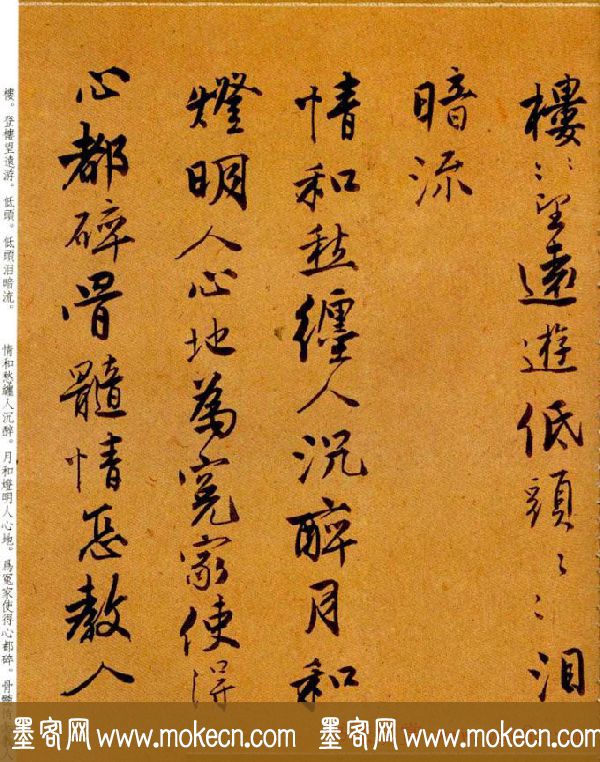 樓〻望遠遊低頭〻〻泪
暗流
情和愁纏人沉醉月和
燈明人心地為冤家使得
心都碎骨髓情怎教人
樓。登樓望遠游。低頭。低頭泪暗流。 情和愁纏人沉醉。月和燈明人心地。爲冤家使得心都碎。骨髓情
墨客网 www.mokecn.com 墨客网 www.mokecn.com